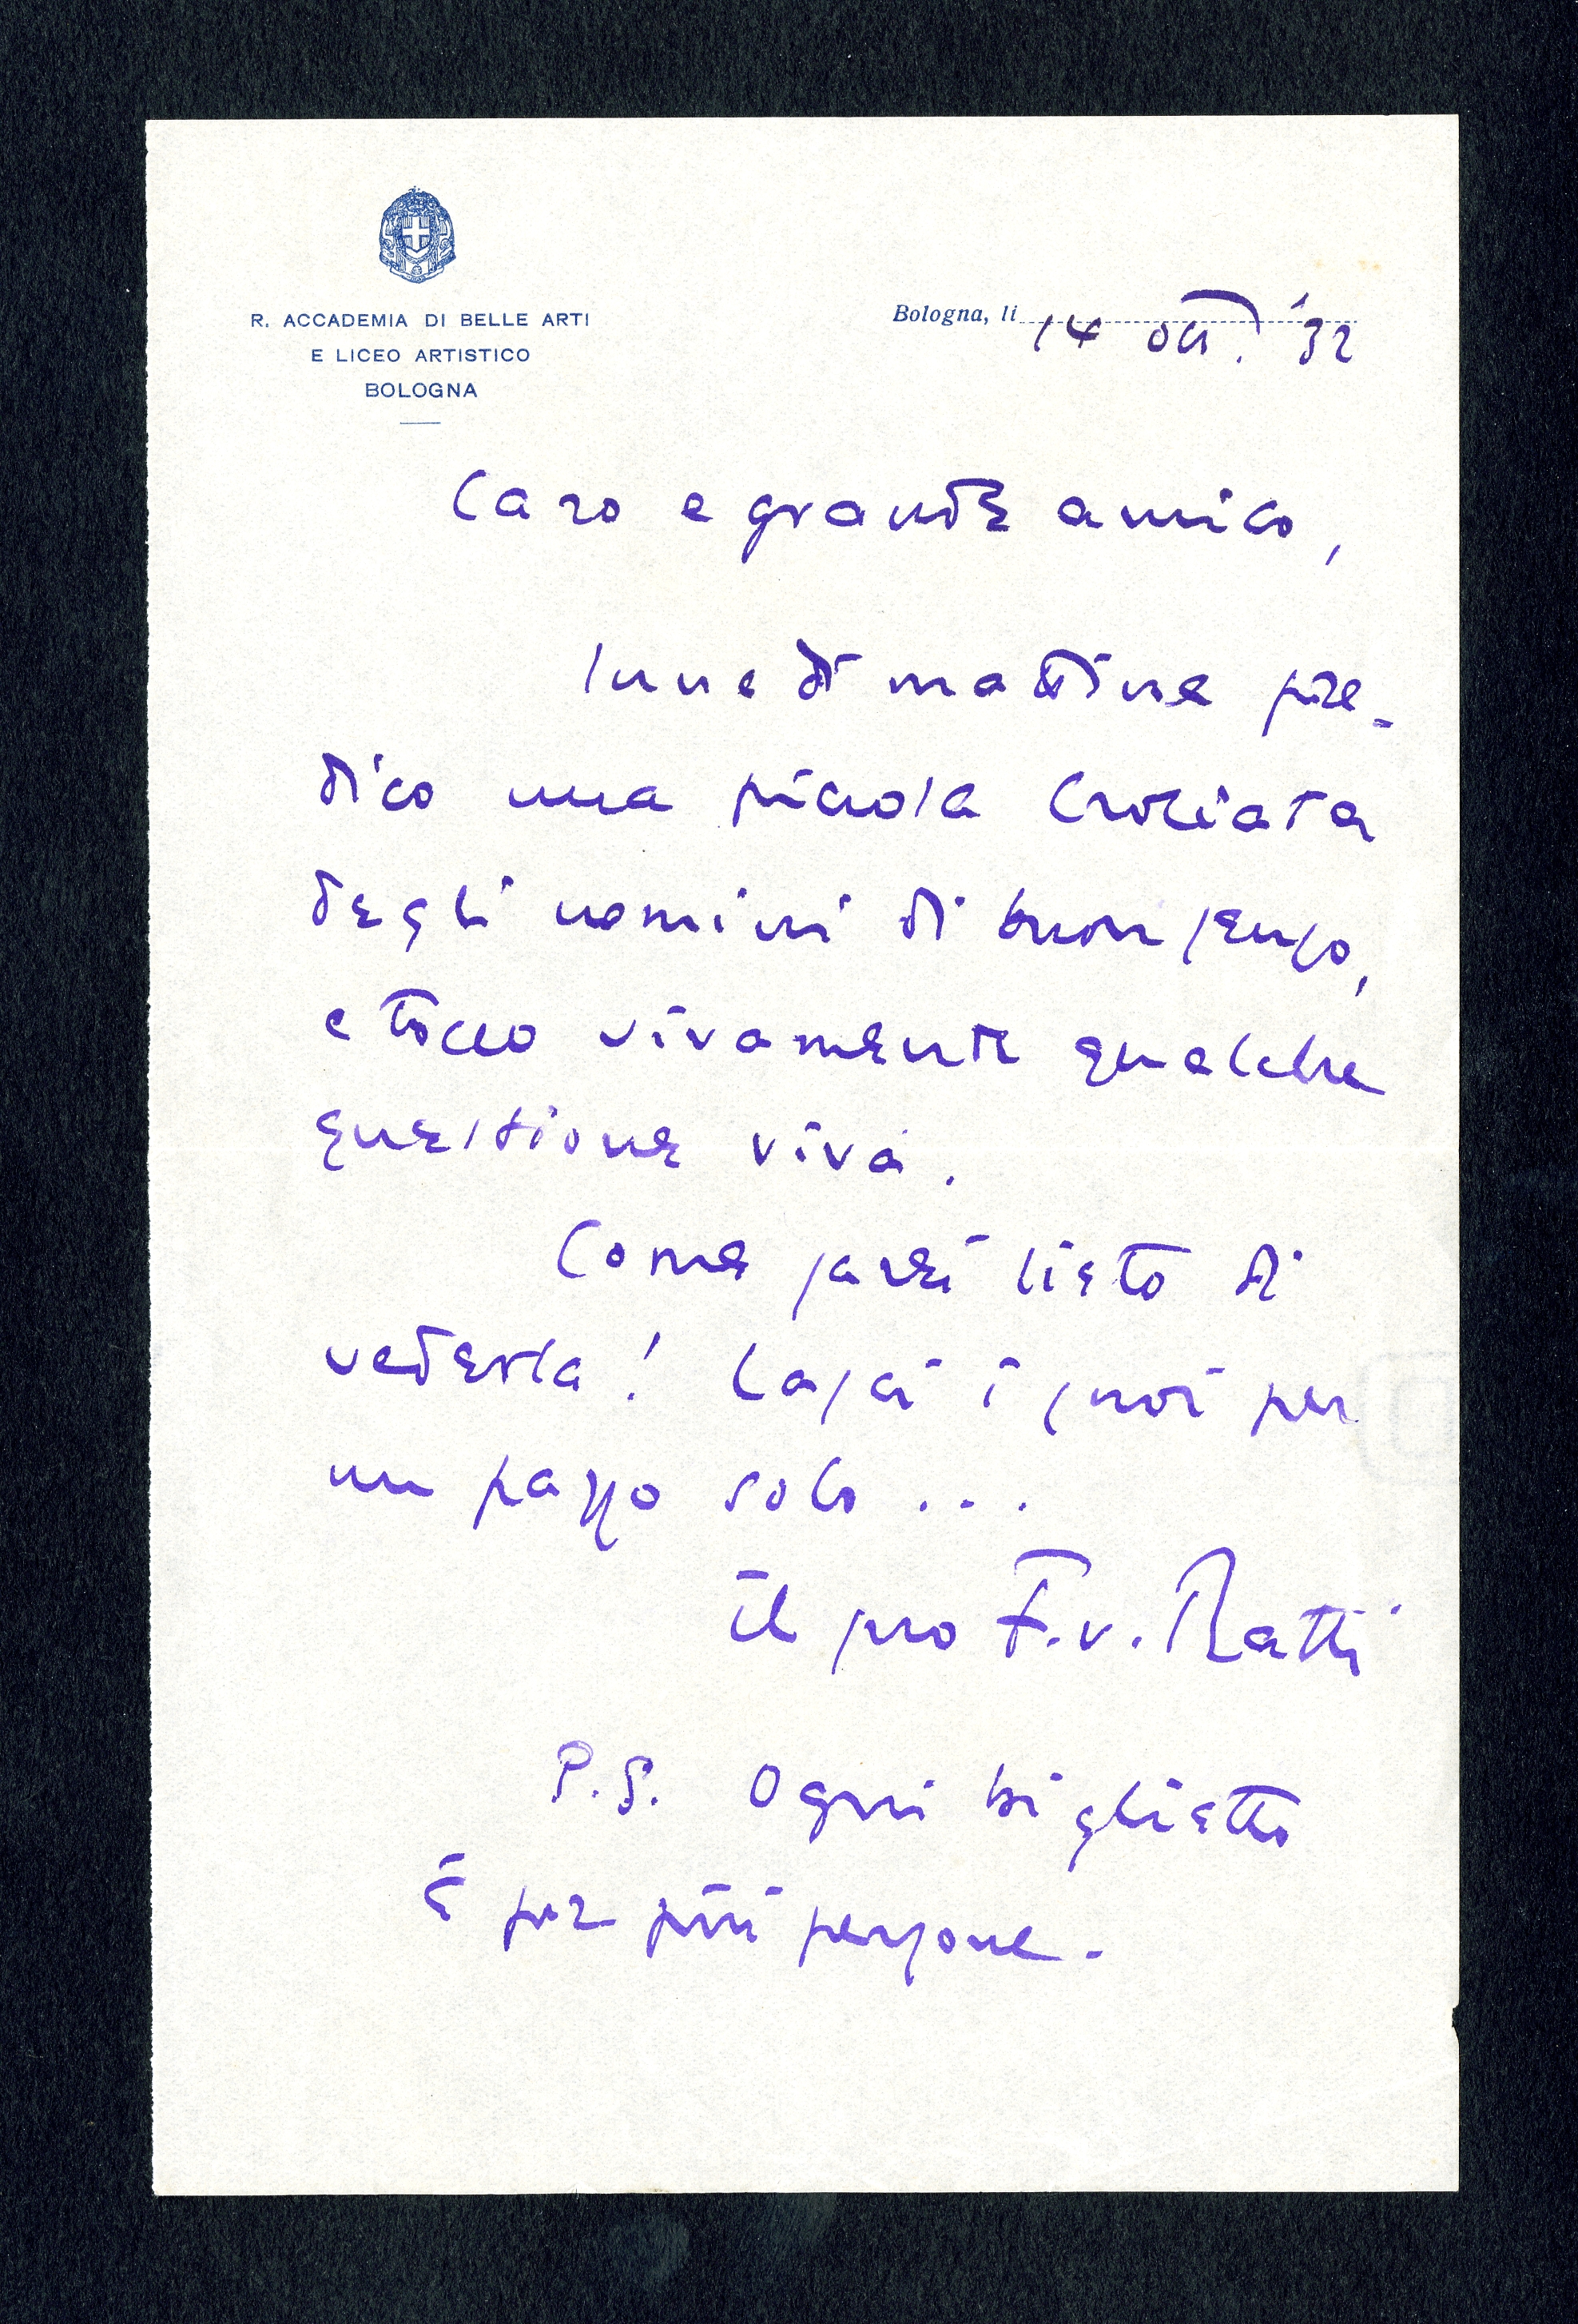 R. ACCADEMIA DI BELLE ARTI
E LICEO ARTISTICO
BOLOGNA
Bologna, li 14 ott. '32
Caro e grande amico,
lunedì mattina pre-
dico una piccola Crociata
degli uomini di buon senso,
e tocco vivamente qualche
questione viva.
Come sarei lieto di
vederla! Lasci i suoi per
un passo solo ...
il suo F. v. Ratti
P.S. Ogni biglietto
è per più persone.